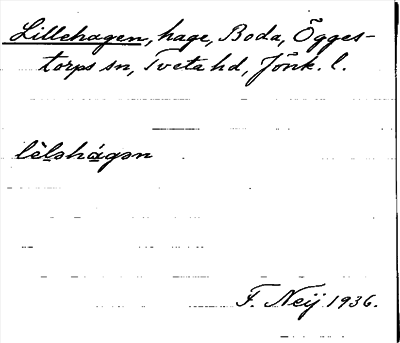 Lillehagen, hage, Boda, Ögges-
torps sn, Tveta hd, Jönk. l.
lèləhágən
F. Neij 1936.